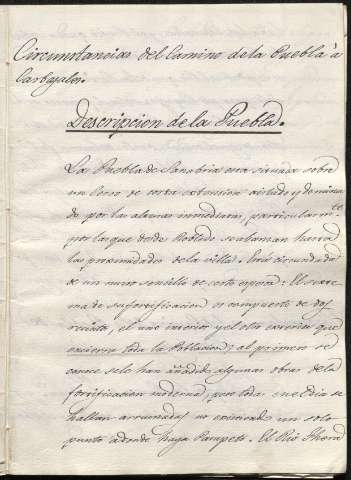 Circunstancias del Camino de la Puebla à
Carbajales.
Descripcion de la Puebla.
La Puebla de Sanabria esta situada sobre
un Cerro de corta extension aislado y domina
do por las alturas inmediatas, particularm.te
por las que desde Robledo se abanzan hacia
las proximidades de la villa. Está circundada
de un muro sencillo de corto espesor: El siste
ma de su fortificacion se compone de dos
recintos, el uno interior y el otro exterior que
encierra toda la Poblacion; al primero se
conoce se le han añadido algunas obras de la
fortificacion moderna, pero todas en el dia se
hallan arruinadas no existiendo un solo
punto adonde haya Parapeto. El Rio Thera